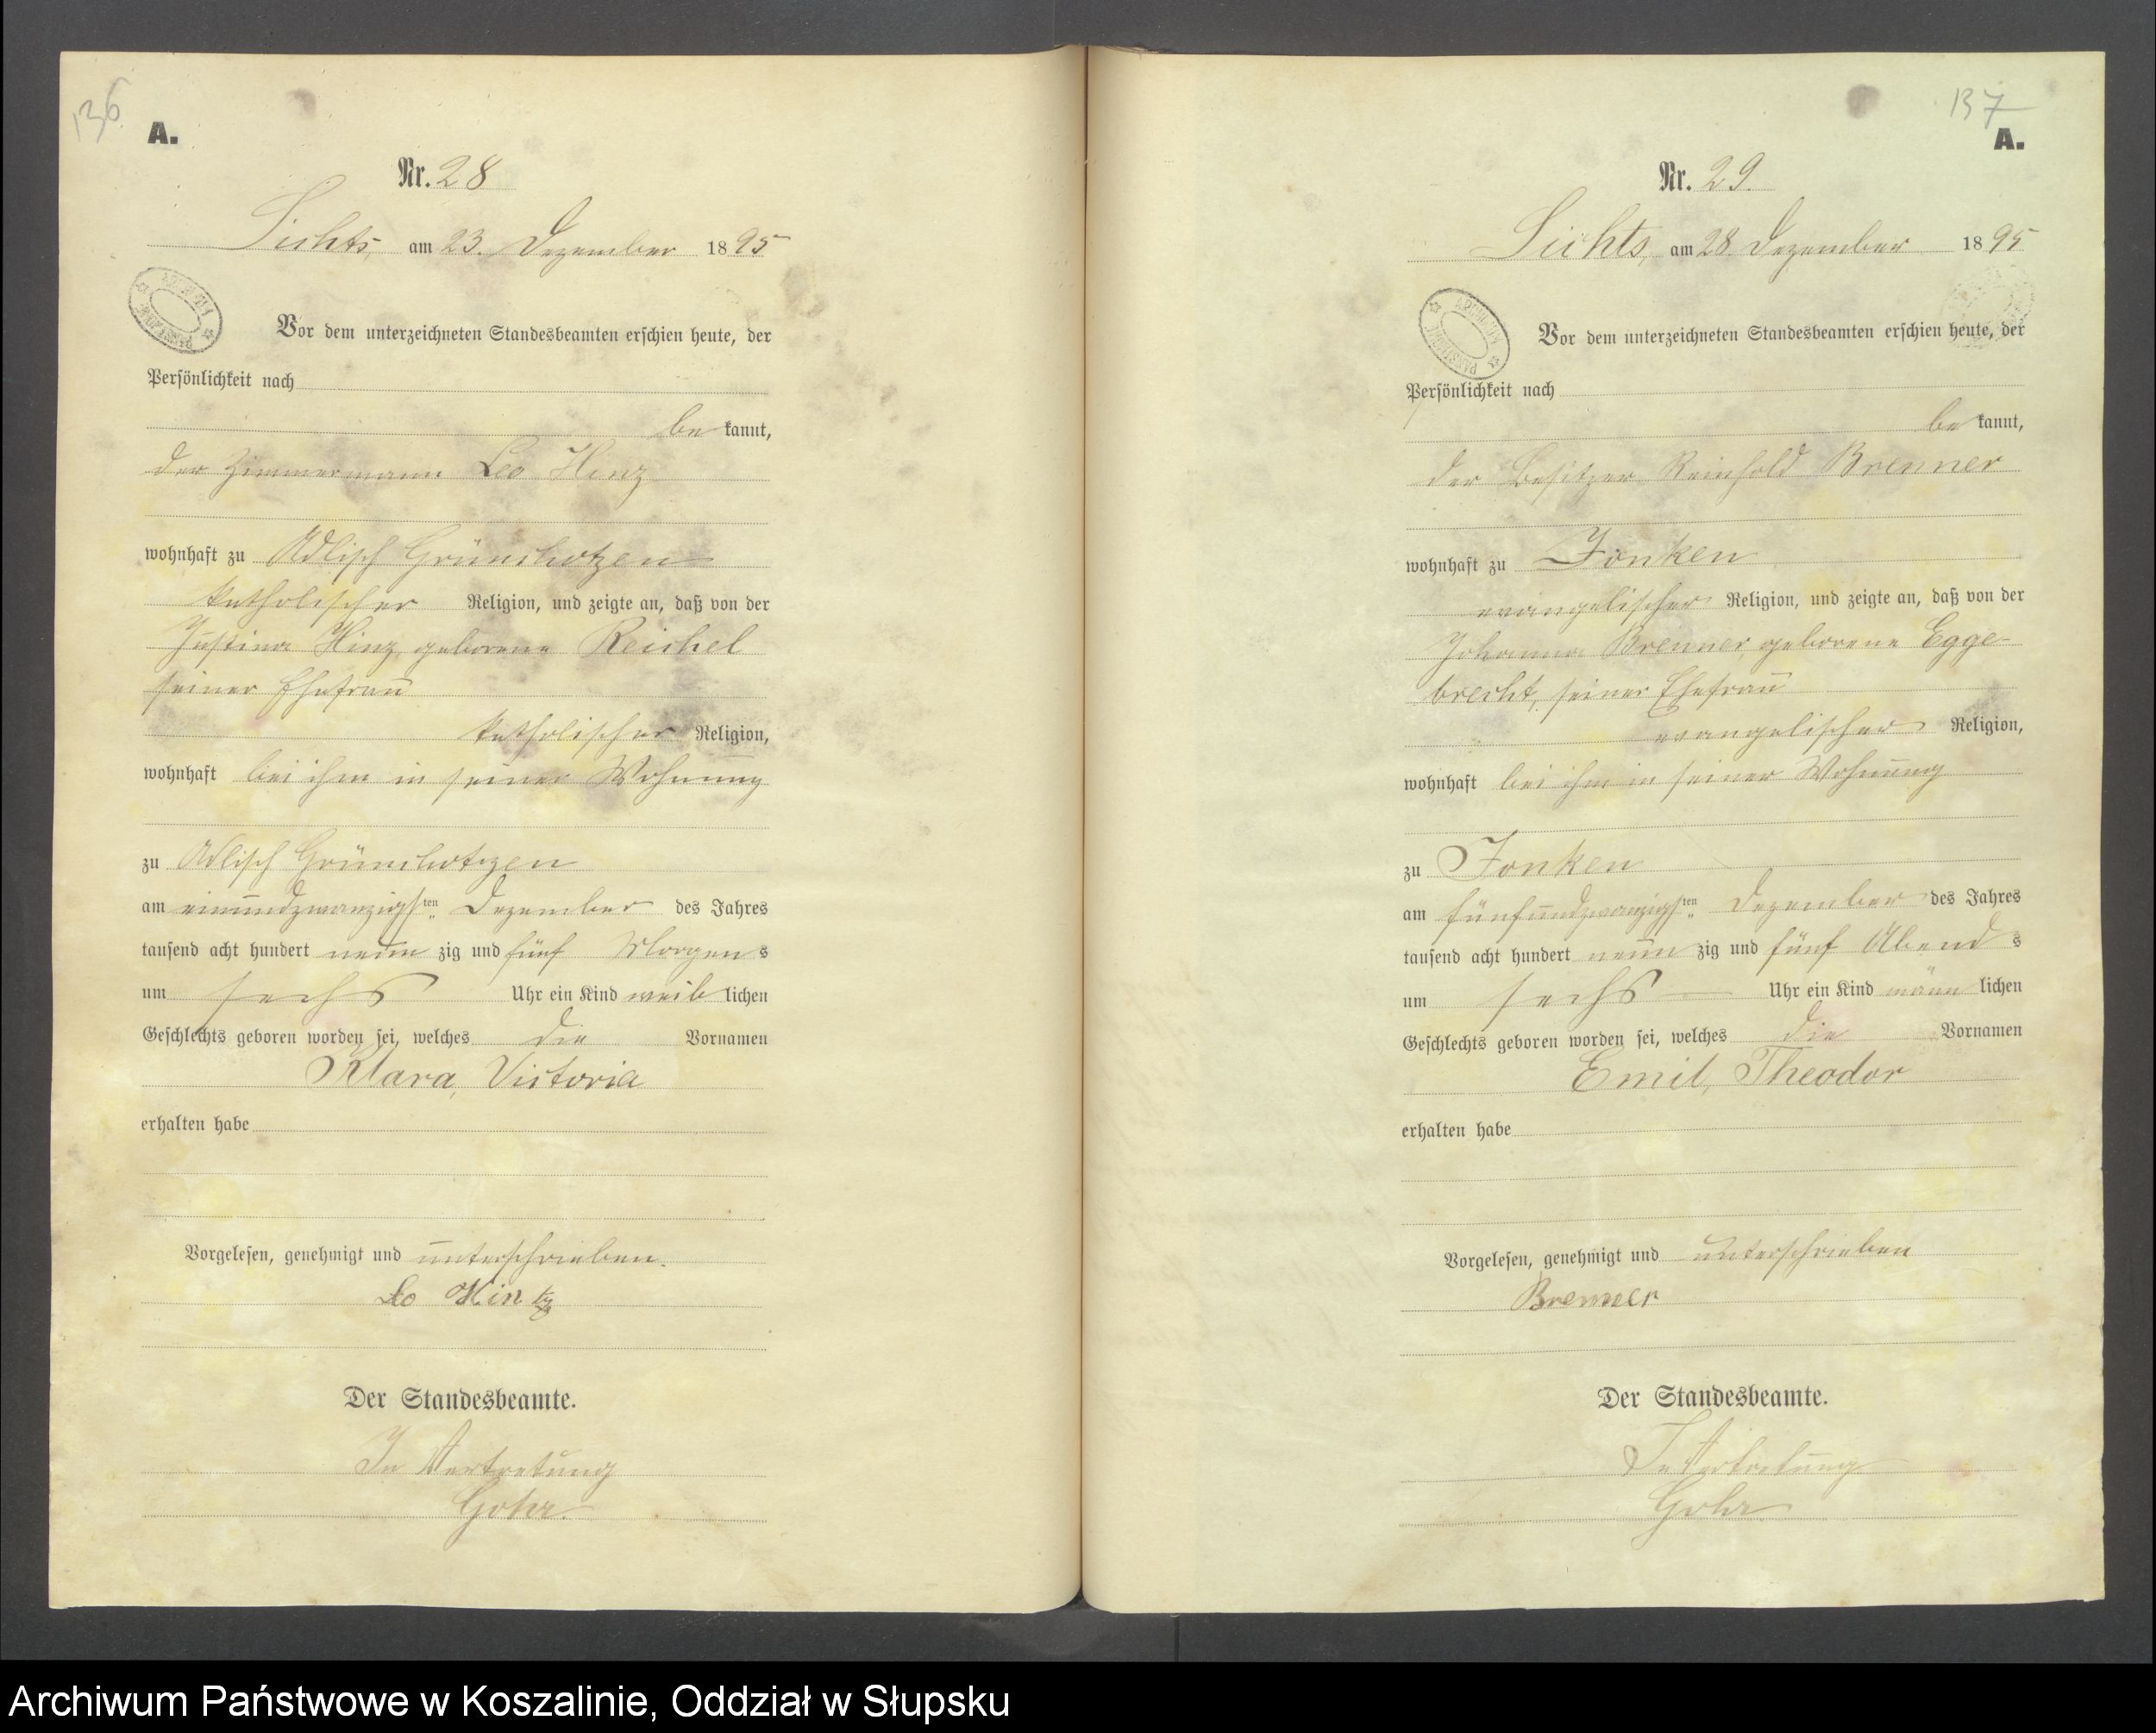 136
A.
Nr. 28
Sichts, am 23. Dezember 1895
Vor dem unterzeichneten Standesbeamten erschien heute, der
Persönlichkeit nach
be kannt,
der Zimmermann Leo Hinz
wohnhaft zu Adlisch Grünchotzen
katholischer Religion, und zeigte an, daß von der
Justina Hinz, geborene Reichel
seiner Ehefrau
katholischer Religion,
wohnhaft bei ihm in seiner Wohnung
zu Adlisch Grünchotzen
am einundzwanzigsten Dezember des Jahres
tausend acht hundert neun zig und fünf Morgens
um sechs Uhr ein Kind weib lichen
Geschlechts geboren worden sei, welches die Vornamen
Klara, Victoria
erhalten habe
Vorgelesen, genehmigt und unterschrieben.
Leo Hintz
Der Standesbeamte.
In Vertretung
Gohr.
137
A.
Nr. 29.
Sichts, am 28. Dezember 1895
Vor dem unterzeichneten Standesbeamten erschien heute, der
Persönlichkeit nach
be kannt,
der Besitzer Reinhold Brenner
wohnhaft zu Jonken
evangelischer Religion, und zeigte an, daß von der
Johanna Brenner, geborene Egge-
brecht, seiner Ehefrau
evangelischer Religion,
wohnhaft bei ihm in seiner Wohnung
zu Jonken
am fünfundzwanzigsten Dezember des Jahres
tausend acht hundert neun zig und fünf Abends
um sechs Uhr ein Kind männ lichen
Geschlechts geboren worden sei, welches die Vornamen
Emil, Theodor
erhalten habe
Vorgelesen, genehmigt und unterschrieben
Brenner
Der Standesbeamte.
In Vertretung
Gohr
Archiwum Państwowe w Koszalinie, Oddział w Słupsku